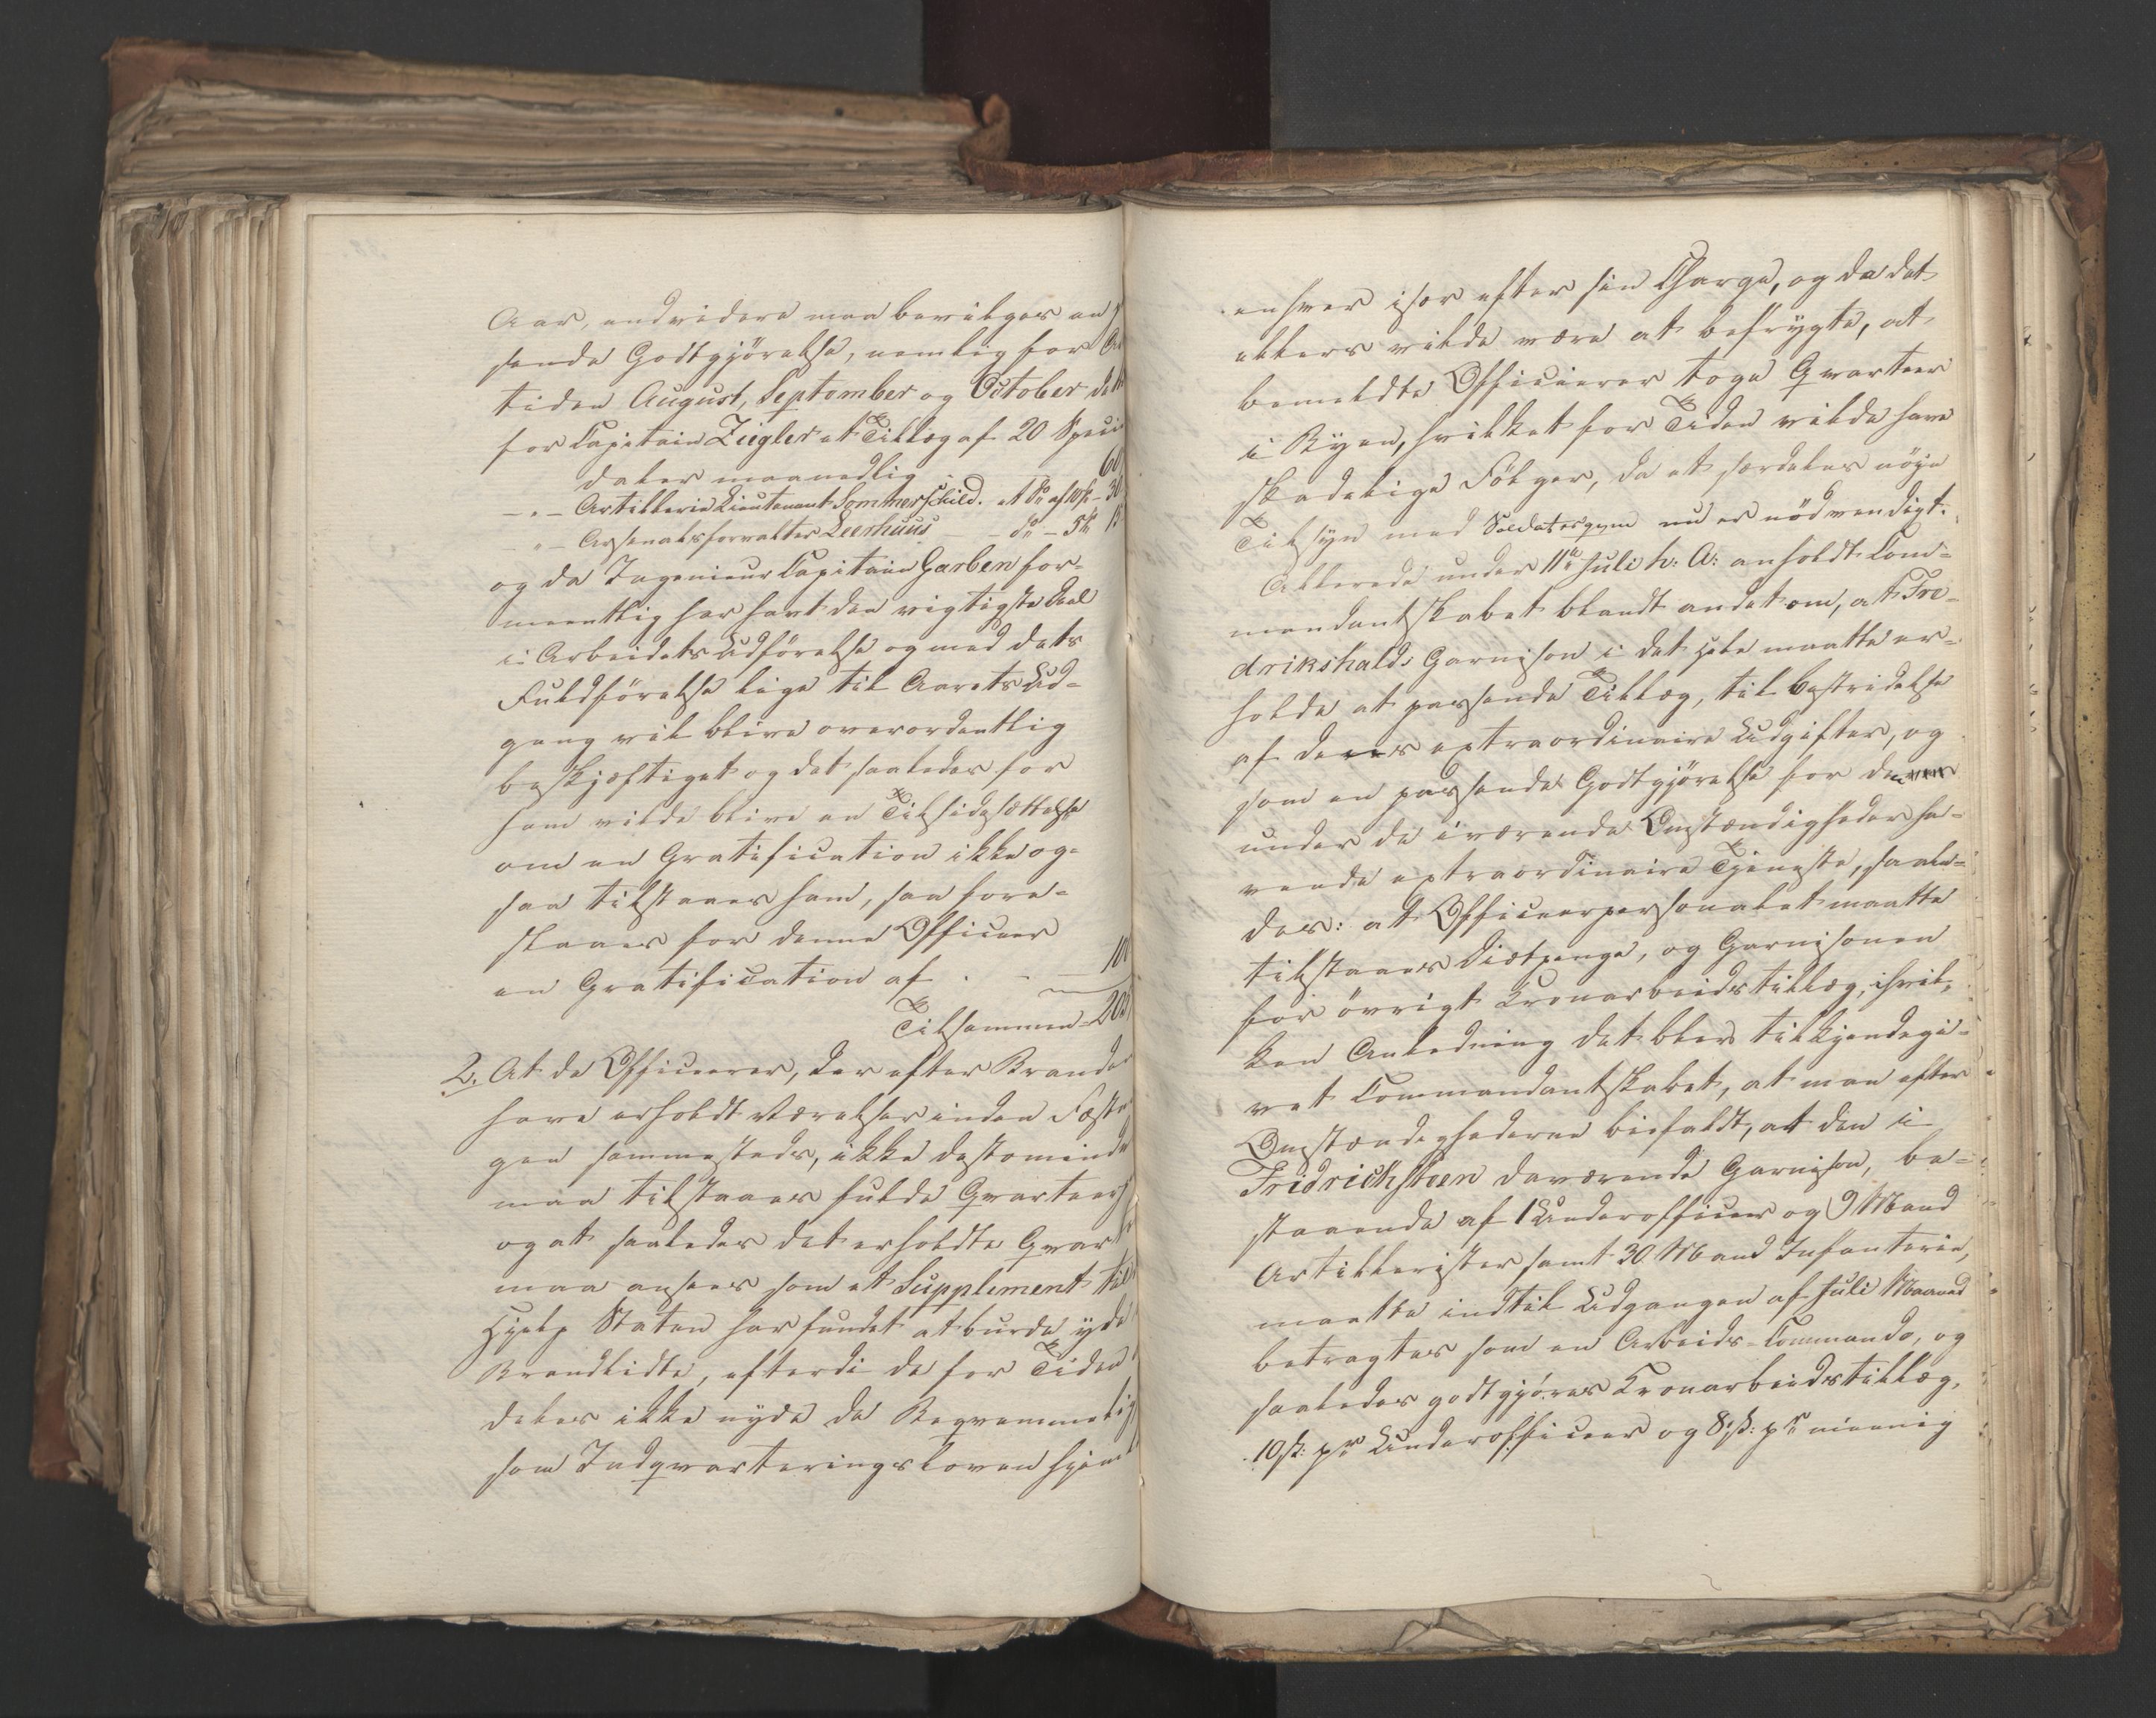 Aar, endvidere maa bevilges en
sende Godtgjörelse, nemlig for
tiden August, September og October
for Capitain Ziegler et Tillæg af 20 Speci
daler maanedlig 60
" Artillerie Lieutenant Sommerschild. et do af 10 - 30
" Arsenalsforvalter Leerhuus do - 5 15
og da Ingenieur Capitain Garben for-
meentlig har havt den vigtigste Deel
i Arbeidets Udförelse og med dets
Fuldförelse lige til Aarets Ud-
gang vil blive overordentlig
beskjæftiget og det saaledes for
ham vilde blive en Tilsidesættelse
om en Gratification ikke og-
saa tilstaaes ham, saa fore-
slaaes for denne Officeer
en Gratification af . . 100
Tilsammen 205
2. At de Officerer, der efter Branden
have erholdt Værelser inden Fæst
gen sammesteds, ikke destomindre
maa tilstaaes fulde Qvarteer
og at saaledes det erholdte Qvar
maa ansees som et Supplement til
Hjelp Staten har fundet at burde yde
Brandlidte, efterdi de for Tiden
deles ikke nyde de Beqvemmelig
som Indqvarteringsloven hjem
enhver især efter sin Charge, og da det
ellers vilde være at befrygte, at
bemeldte Officierer toge Qvarteer
i Byen, hvilket for Tiden vilde have
skadelige Fölger, da et særdeles nöye
Tilsyn med nu er nödvendigt.
Allerede under 11te Juli h: A: anholdt Com-
mandantskabet blandt andet om, at Fre-
drikshalds Garnison i det Hele maatte er-
holde et passende Tillæg, til Bestridelse
af deres extraordinaire Udgifter, og
som en passende Godtgjörelse for deres
under de iværende Omstændigheder ha-
vende extraordinaire Tjeneste, saale-
des: at Officeerpersonalet maatte
tilstaaes Diætpenge, og Garnisonen
for övrigt Kronarbeidstillæg, i hvil-
ken Anledning det blev tilkjendegi-
vet Commandantskabet, at man efter
Omstændighederne bifaldt, at den i
Fridrichsteen daværende Garnison, be-
staaende af 1 Underofficeer og 9 Mand
Artillerister samt 30 Mand Infanterie,
maatte indtil Udgangen af Juli Maaned
betragtes som en Arbeids-Commando, og
saaledes godtgjöres Kronarbeidstillæg,
10 ß: pr Underofficeer og 8 ß: pr meenig